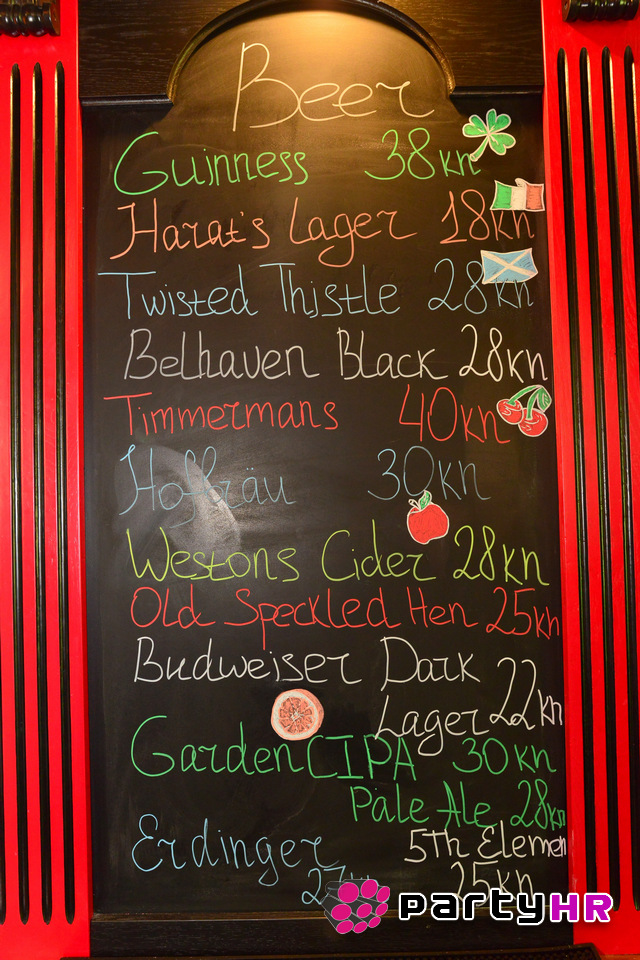 Beer
Guinness 38kn
Harat's Lager 18kn
Twisted Thistle 28kn
Belhaven Black 28kn
Timmermans 40kn
Hofbräu 30kn
Westons Cider 28kn
Old Speckled Hen 25kn
Budweiser Dark
Lager 22kn
Garden CIPA 30kn
Pale Ale 28kn
Erdinger 5th Elemen
27kn 25kn
partyHR